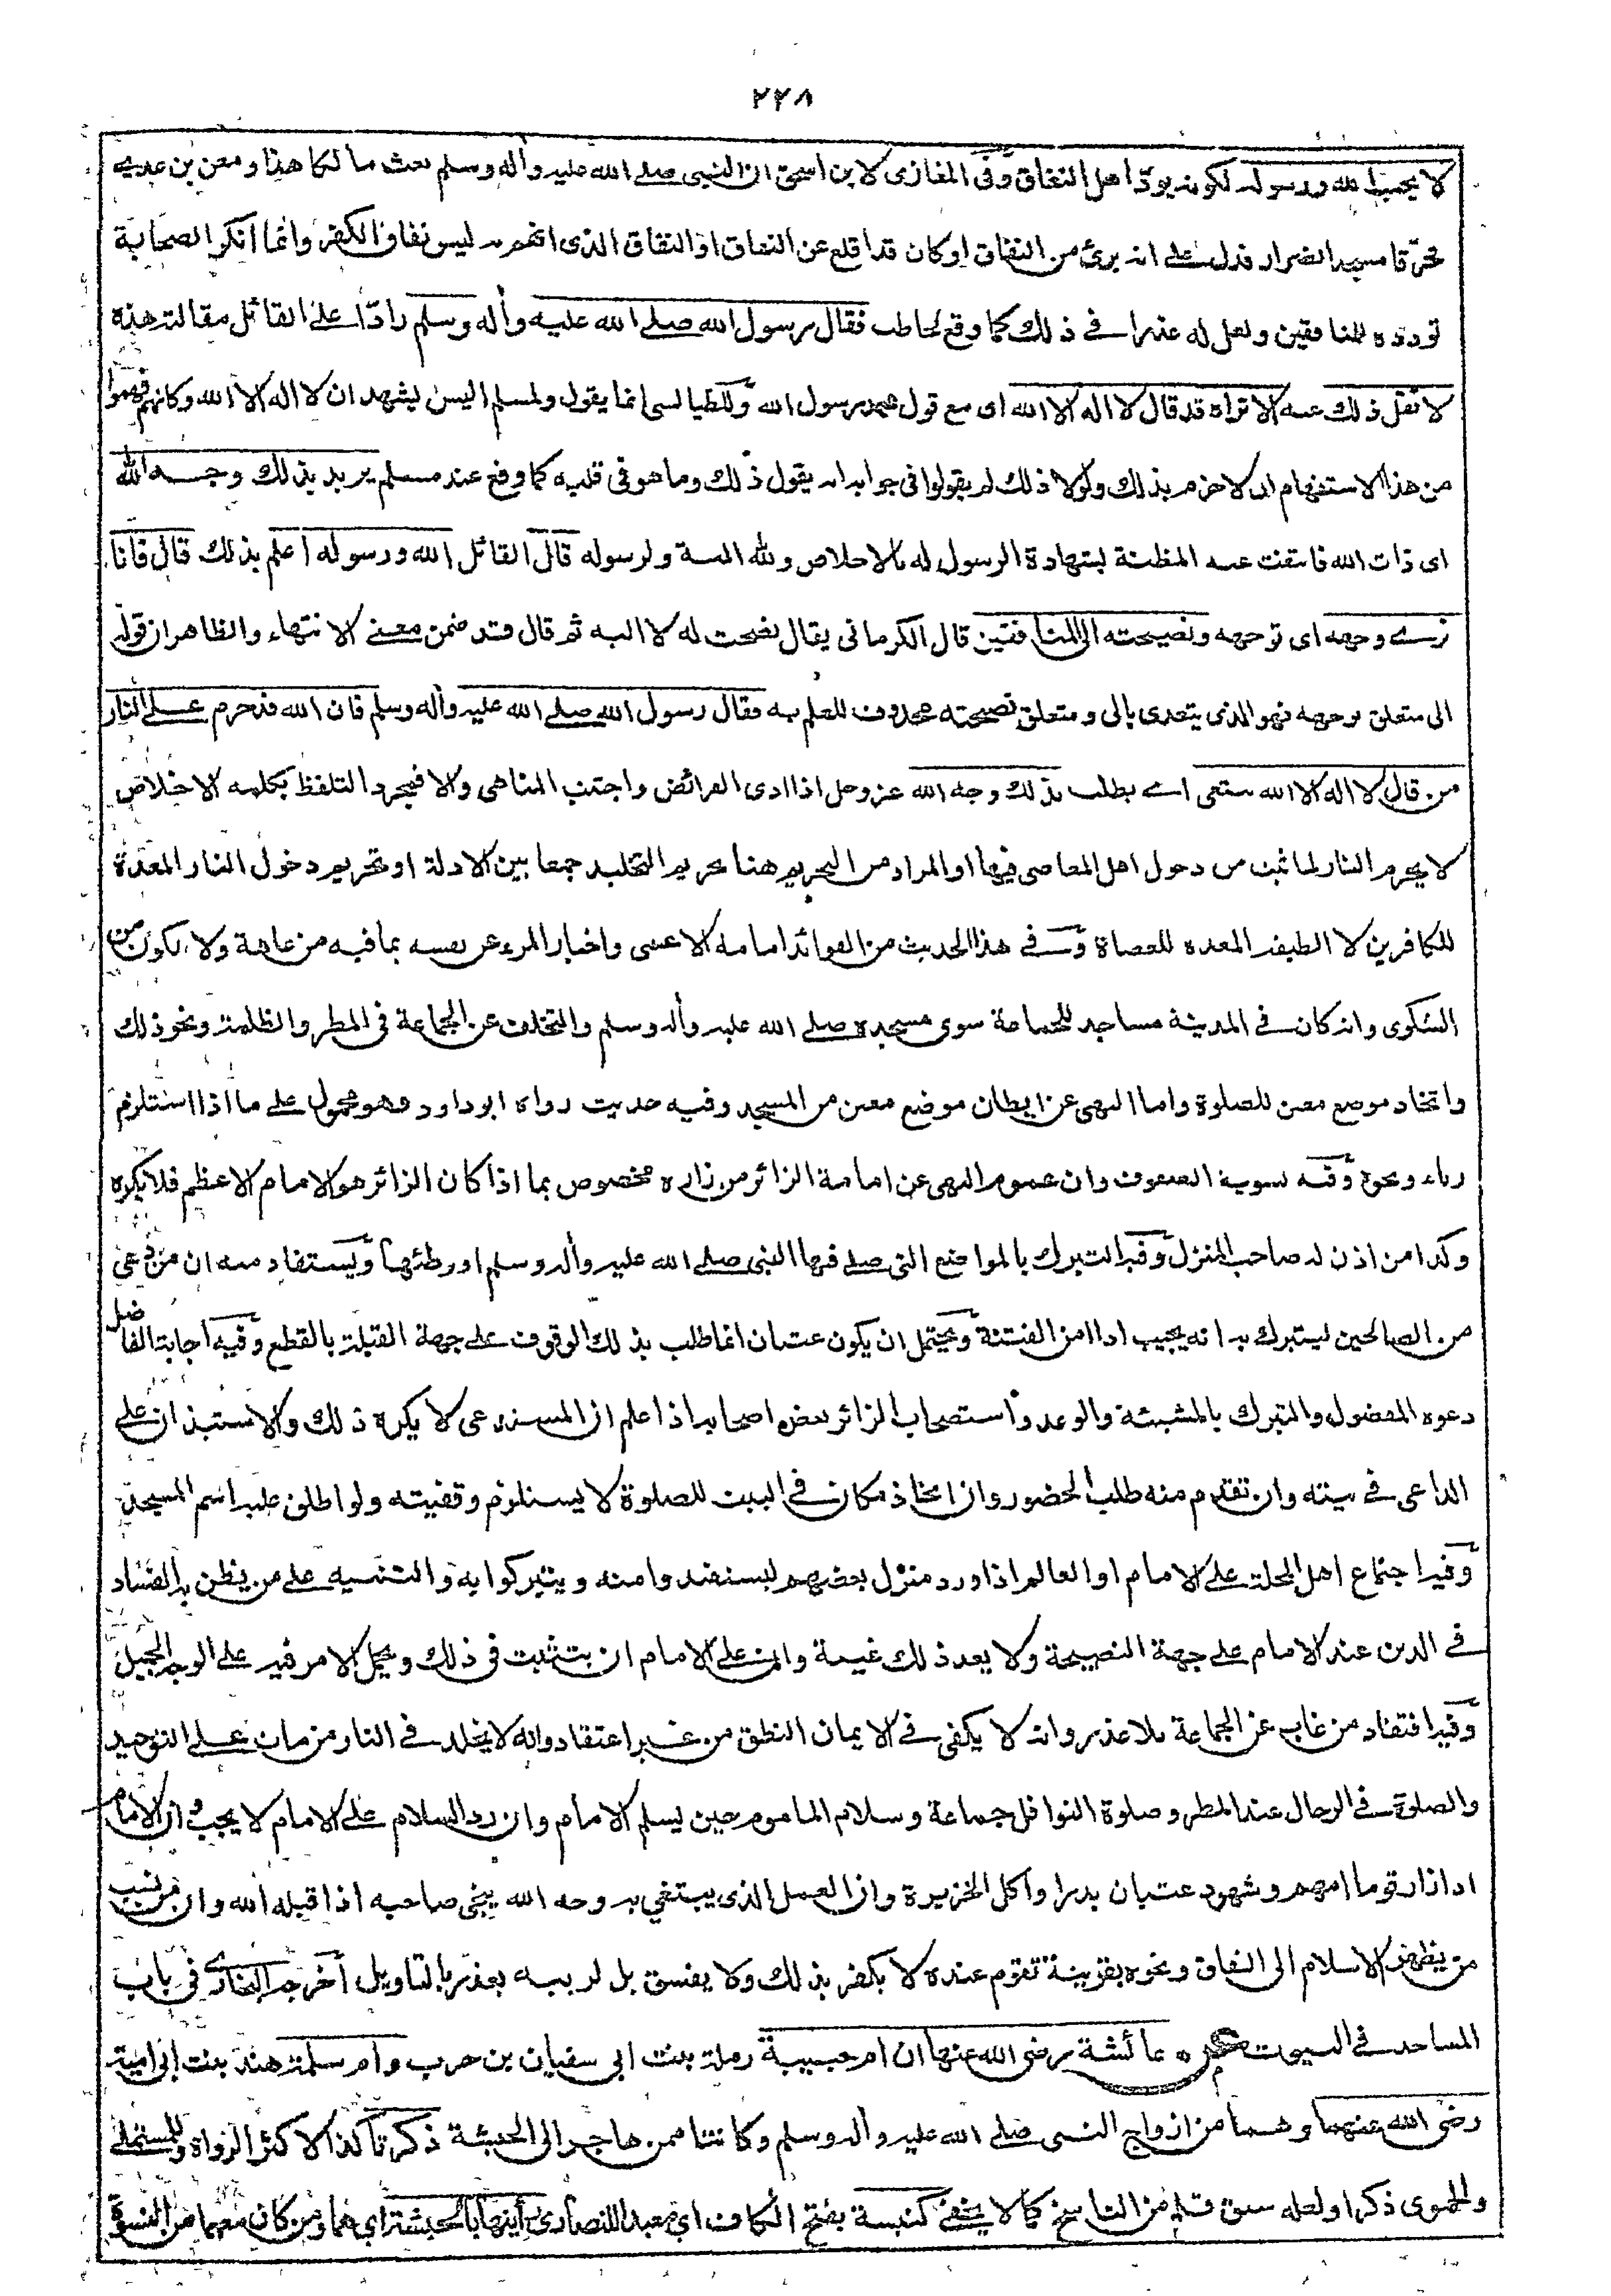 ٢٢٨
لا يحب الله ورسوله لكونه يودّ اهل النفاق وفى المغازى لابن اسحق ان النبى صلے الله عليه وأله وسلم بعث مالكا هذا ومعن بن عدے
نحرّقا مسجد الضرار فدل على انه برئ من النفاق او كان قد اقلع عن النفاق او النفاق الذى اتهم به ليس نفاق الكفر وانما انكر الصحابة
تودده للمنافقين ولعل له عذرا فے ذلك كما وقع لحاطب فقال رسول الله صلے الله عليه وأله وسلم رادّا على القائل مقالته هذه
لا تقل ذلك عنه الا تراه قد قال لا اله الا الله اى مع قول محمد رسول الله وللطيالسى انما يقول ولمسلم اليس يشهد ان لا اله الا الله وكانهم فهموا
من هذا الاستفهام ان لا جزم بذلك ولولا ذلك لم يقولوا فى جوابه انه يقول ذلك وما هو فى قلبه كما وقع عند مسلم يريد بذلك وجه الله
اى ذات الله فانتفت عنه المظنة بشهادة الرسول له بالاخلاص ولله المنة ولرسوله قال القائل الله ورسوله اعلم بذلك قال فانا
نرے وجهه اى توجهه ونصيحته الى المنافقين قال الكرمانى يقال نصحت له لا اليه ثم قال قد ضمن معنے الانتهاء والظاهر ان قوله
الى متعلق بوجهه فهو الذى يتعدى بالى ومتعلق نصيحته محذوف للعلم به فقال رسول الله صلے الله عليه وأله وسلم فان الله قد حرم علے النار
من قال لا اله الا الله يبتغى اے يطلب بذلك وجه الله عز وجل اذا ادى الفرائض واجتنب المناهى والا فمجرد التلفظ بكلمة الاخلاص
لا يحرم النار لما ثبت من دخول اهل المعاصى فيها او المراد من التحريم هنا تحريم التخليد جمعا بين الادلة او تحريم دخول النار المعدة
للكافرين لا الطبقة المعدة للعصاة وفے هذا الحديث من الفوائد امامة الاعمى واخبار المرء عن نفسه بما فيه من عاهة ولا يكون من
الشكوى وانه كان فے المدينة مساجد للجماعة سوى مسجده صلے الله عليه وأله وسلم والتخلف عن الجماعة فى المطر والظلمة ونحو ذلك
واتخاذ موضع معين للصلوة واما النهى عن ايطان موضع معين من المسجد وفيه حديث رواه ابو داود فهو محمول على ما اذا استلزم
رياء ونحوه وفيه تسوية الصفوف وان عموم النهى عن امامة الزائر من زاره مخصوص بما اذا كان الزائر هو الامام الاعظم فلا يكره
وكذا من اذن له صاحب المنزل وفيه التبرك بالمواضع التى صلے فيها النبى صلے الله عليه وأله وسلم او وطئها ويستفاد منه ان من دعى
من الصالحين ليتبرك به انه يجيب اذا امن الفتنة ويحتمل ان يكون عتبان انما طلب بذلك الوقوف علے جهة القبلة بالقطع وفيه اجابة الفاضل
دعوة المفضول والتبرك بالمشيئة والوعد واستصحاب الزائر بعض اصحابه اذا علم ان المستدعى لا يكره ذلك والاستيذان علے
الداعى فے بيته وان تقدم منه طلب الحضور وان اتخاذ مكان فے البيت للصلوة لا يستلزم وقفيته ولو اطلق عليه اسم المسجد
وفيه اجتماع اهل المحلة علے الامام او العالم اذا ورد منزل بعضهم ليستفيدوا منه ويتبركوا به والتنبيه على من يظن به الفساد
فے الدين عند الامام علے جهة النصيحة ولا يعد ذلك غيبة وان على الامام ان يتثبت فى ذلك ويحمل الامر فيه على الوجه الجميل
وفيه افتقاد من غاب عن الجماعة بلا عذر وانه لا يكفى فے الايمان النطق من غير اعتقاد وانه لا يخلد فے النار من مات علے التوحيد
والصلوة فے الرحال عند المطر وصلوة النوافل جماعة وسلام الماموم حين يسلم الامام وان رد السلام على الامام لا يجب وان الامام
اذا زار قوما امهم وشهود عتبان بدرا واكل الخزيرة وان العمل الذى يبتغي به وجه الله ينجى صاحبه اذا قبله الله وان من نسب
من يظهر الاسلام الى النفاق ونحوه بقرينة تقوم عنده لا يكفر بذلك ولا يفسق بل يعذر بالتاويل أخرجه البخارى فى باب
المساجد فے البيوت عن عائشة رضى الله عنها ان ام حبيبة رملة بنت ابى سفيان بن حرب وام سلمة هند بنت ابى امية
رضى الله عنهما وهما من ازواج النبى صلے الله عليه وأله وسلم وكانتا ممن هاجر الى الحبشة ذكرتا كذا لاكثر الرواة وللمستملے
والحموى ذكرا ولعله سبق قلم من الناسخ كما لا يخفے كنيسة بفتح الكاف اي معبد للنصارى رأينها بالحبشة اي هما ومن كان معهما من النسوة